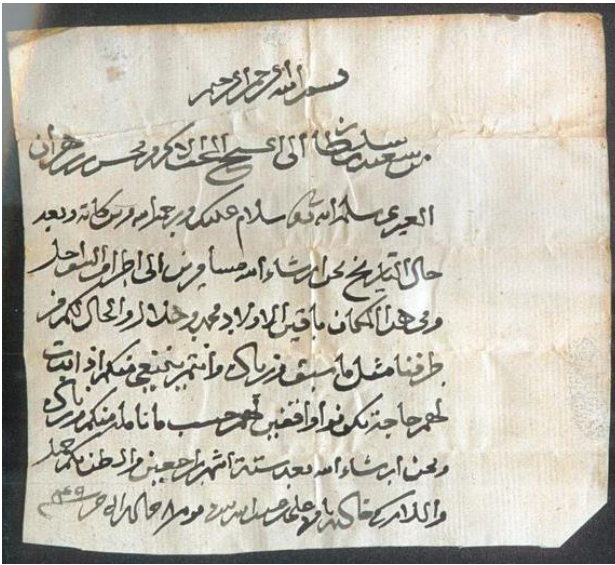 بسم الله الرحمن الرحيم
من سعيد بن سلطان الى الشيخ المحب الاكرم محسن بن زهران
العبري سلمه الله تعالى سلام عليك ورحمة الله وبركاته وبعد
حال التاريخ نحن ان شاء الله مسافرين الى اطراف السواحل
وفي هذا المكان باقين الاولاد محمد و والحال لكم من
طرفنا مثل ما سبق وزياده وانتم ينبغي منكم اذا بدت
لهم حاجة تكونوا واقفين لهم حسب ما نامله منكم وزياده
ونحن ان شاء الله بعد ستة اشهر راجعين والظن بكم جميل
والسلام بيد يوم ٨ جمادى